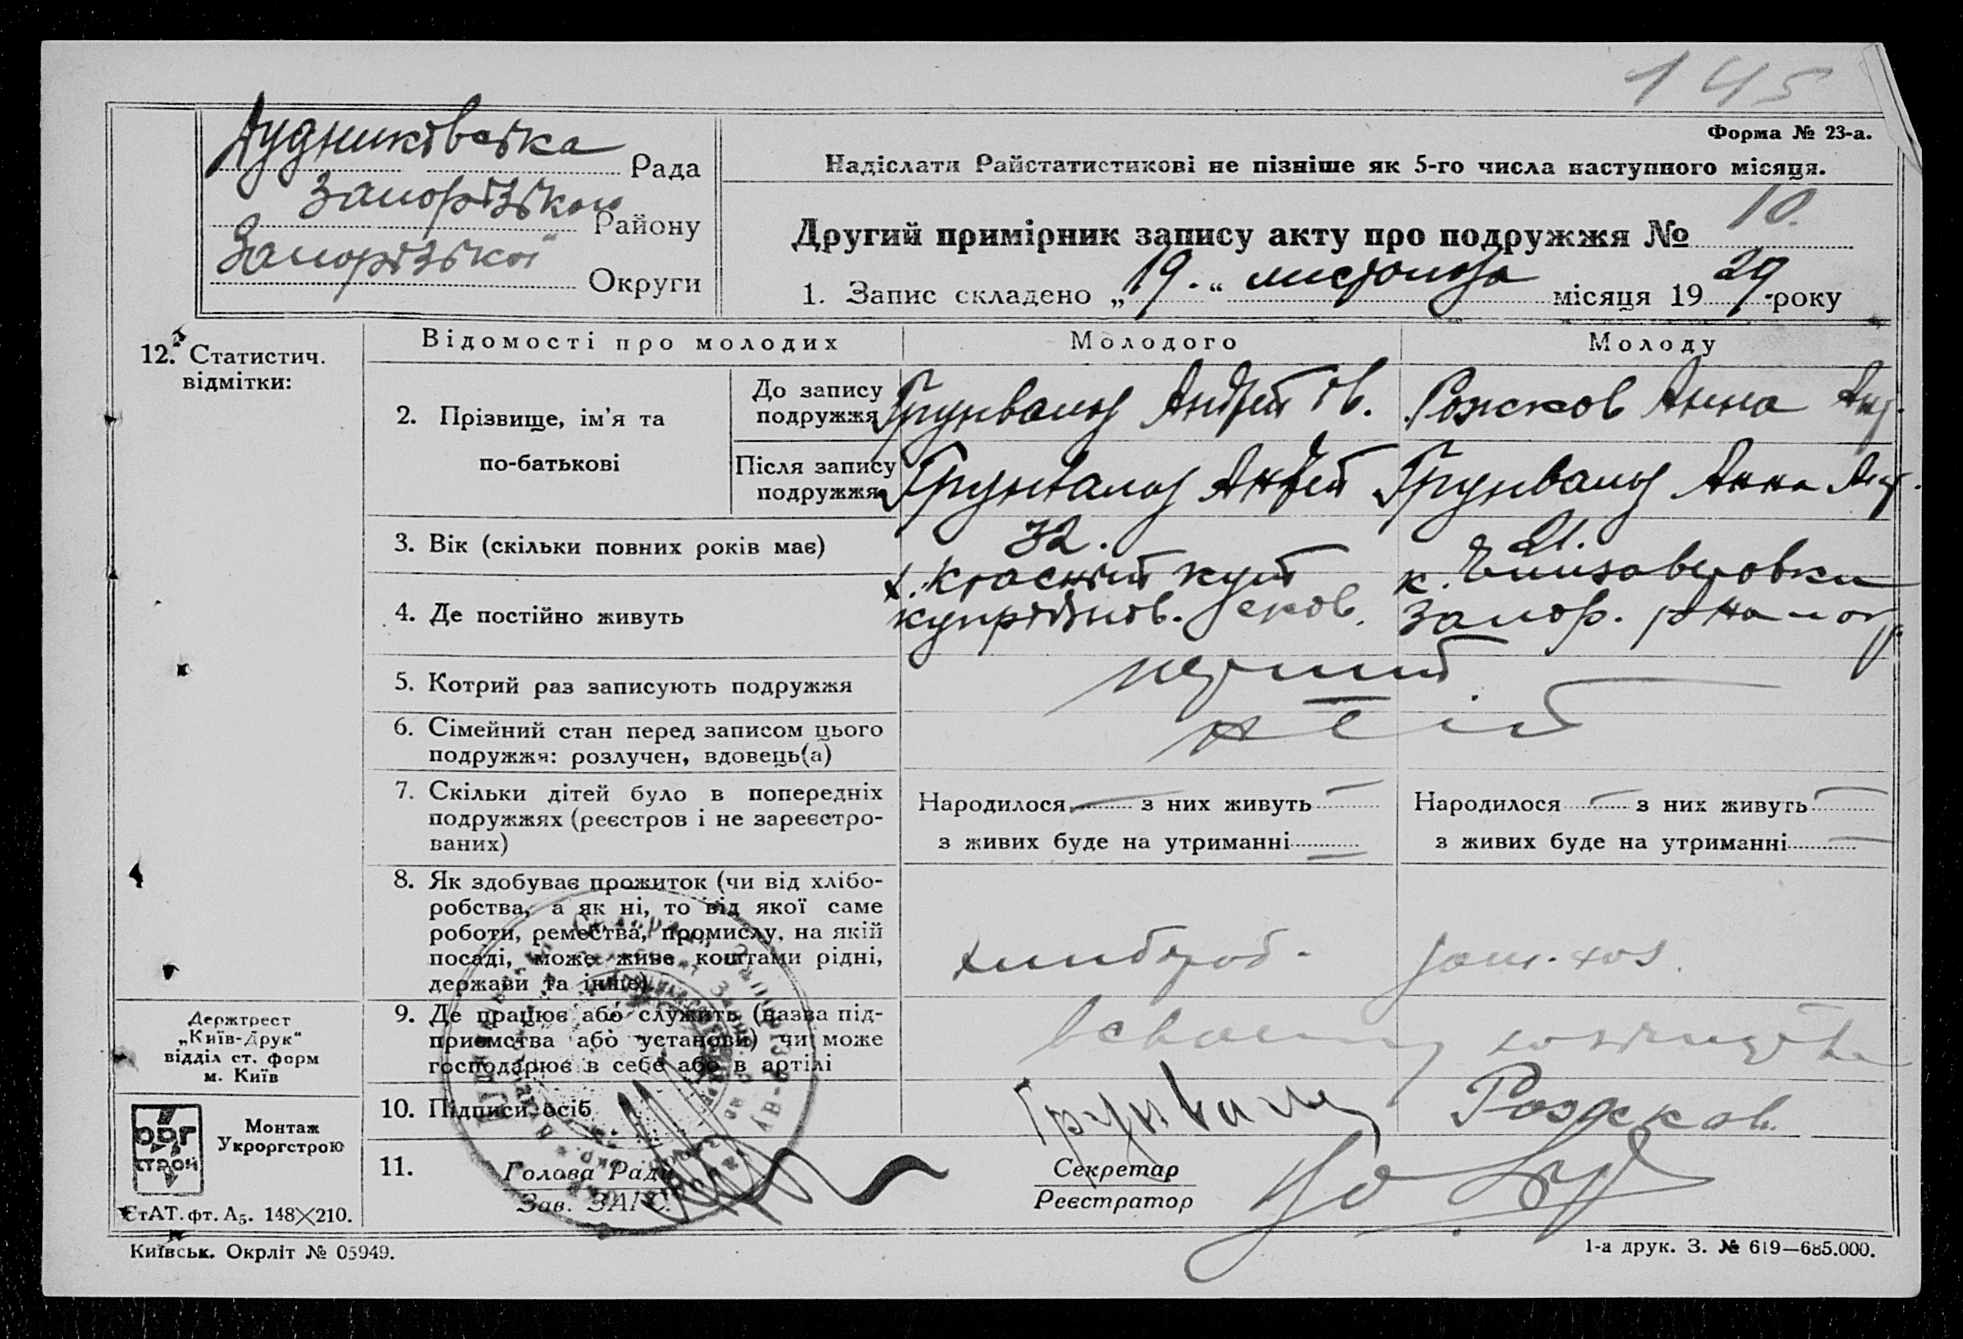 145
Форма № 23-а.
Надіслати Райстатистикові не пізніше як 5-го числа наступного місяця.
Рада
Запорізького Району
Запорізької Округи
Другий примірник запису акту про подружжя № 10.
1. Запис складено „19.“ листопада місяця 1929 року
12. Статистич.
відмітки:
Відомості про молодих
Молодого
Молоду
2. Прізвище, ім'я та
по-батькові
До запису
подружжя
Грунвальд Андрій Ів.
Рожков Анна Анд.
Після запису
подружжя
Грунвальд Андрій
Грунвальд Анна Анд.
3. Вік (скільки повних років має)
32.
21.
4. Де постійно живуть
х. Красний кут
к.
Запор. р-на и окр.
5. Котрий раз записують подружжя
перший
6. Сімейний стан перед записом цього
подружжя: розлучен, вдовець(а)
7. Скільки дітей було в попередніх
подружжях (реєстров і не зареєстро-
ваних)
Народилося — з них живуть —
з живих буде на утриманні —
Народилося — з них живуть —
з живих буде на утриманні —
8. Як здобуває прожиток (чи від хлібо-
робства, а як ні, то від якої саме
роботи, ремества, промислу, на якій
посаді, може живе коштами рідні,
держави та інше)
хлібороб.
дом. хоз.
9. Де працює або служить (назва під-
приємства або установи) чи може
господарює в себе або в артілі
10. Підписи осіб
Грунвальд
Рожков.
11.
Голова Ради
Зав. ЗАГС.
Секретар
Реєстратор
Держтрест
„Київ-Друк“
відділ ст. форм
м. Київ
ОРГ
СТРОЙ
Монтаж
Укроргстрою
СтАТ. фт. А₅. 148×210.
Київськ. Окрліт № 05949.
1-а друк. З. № 619—685.000.